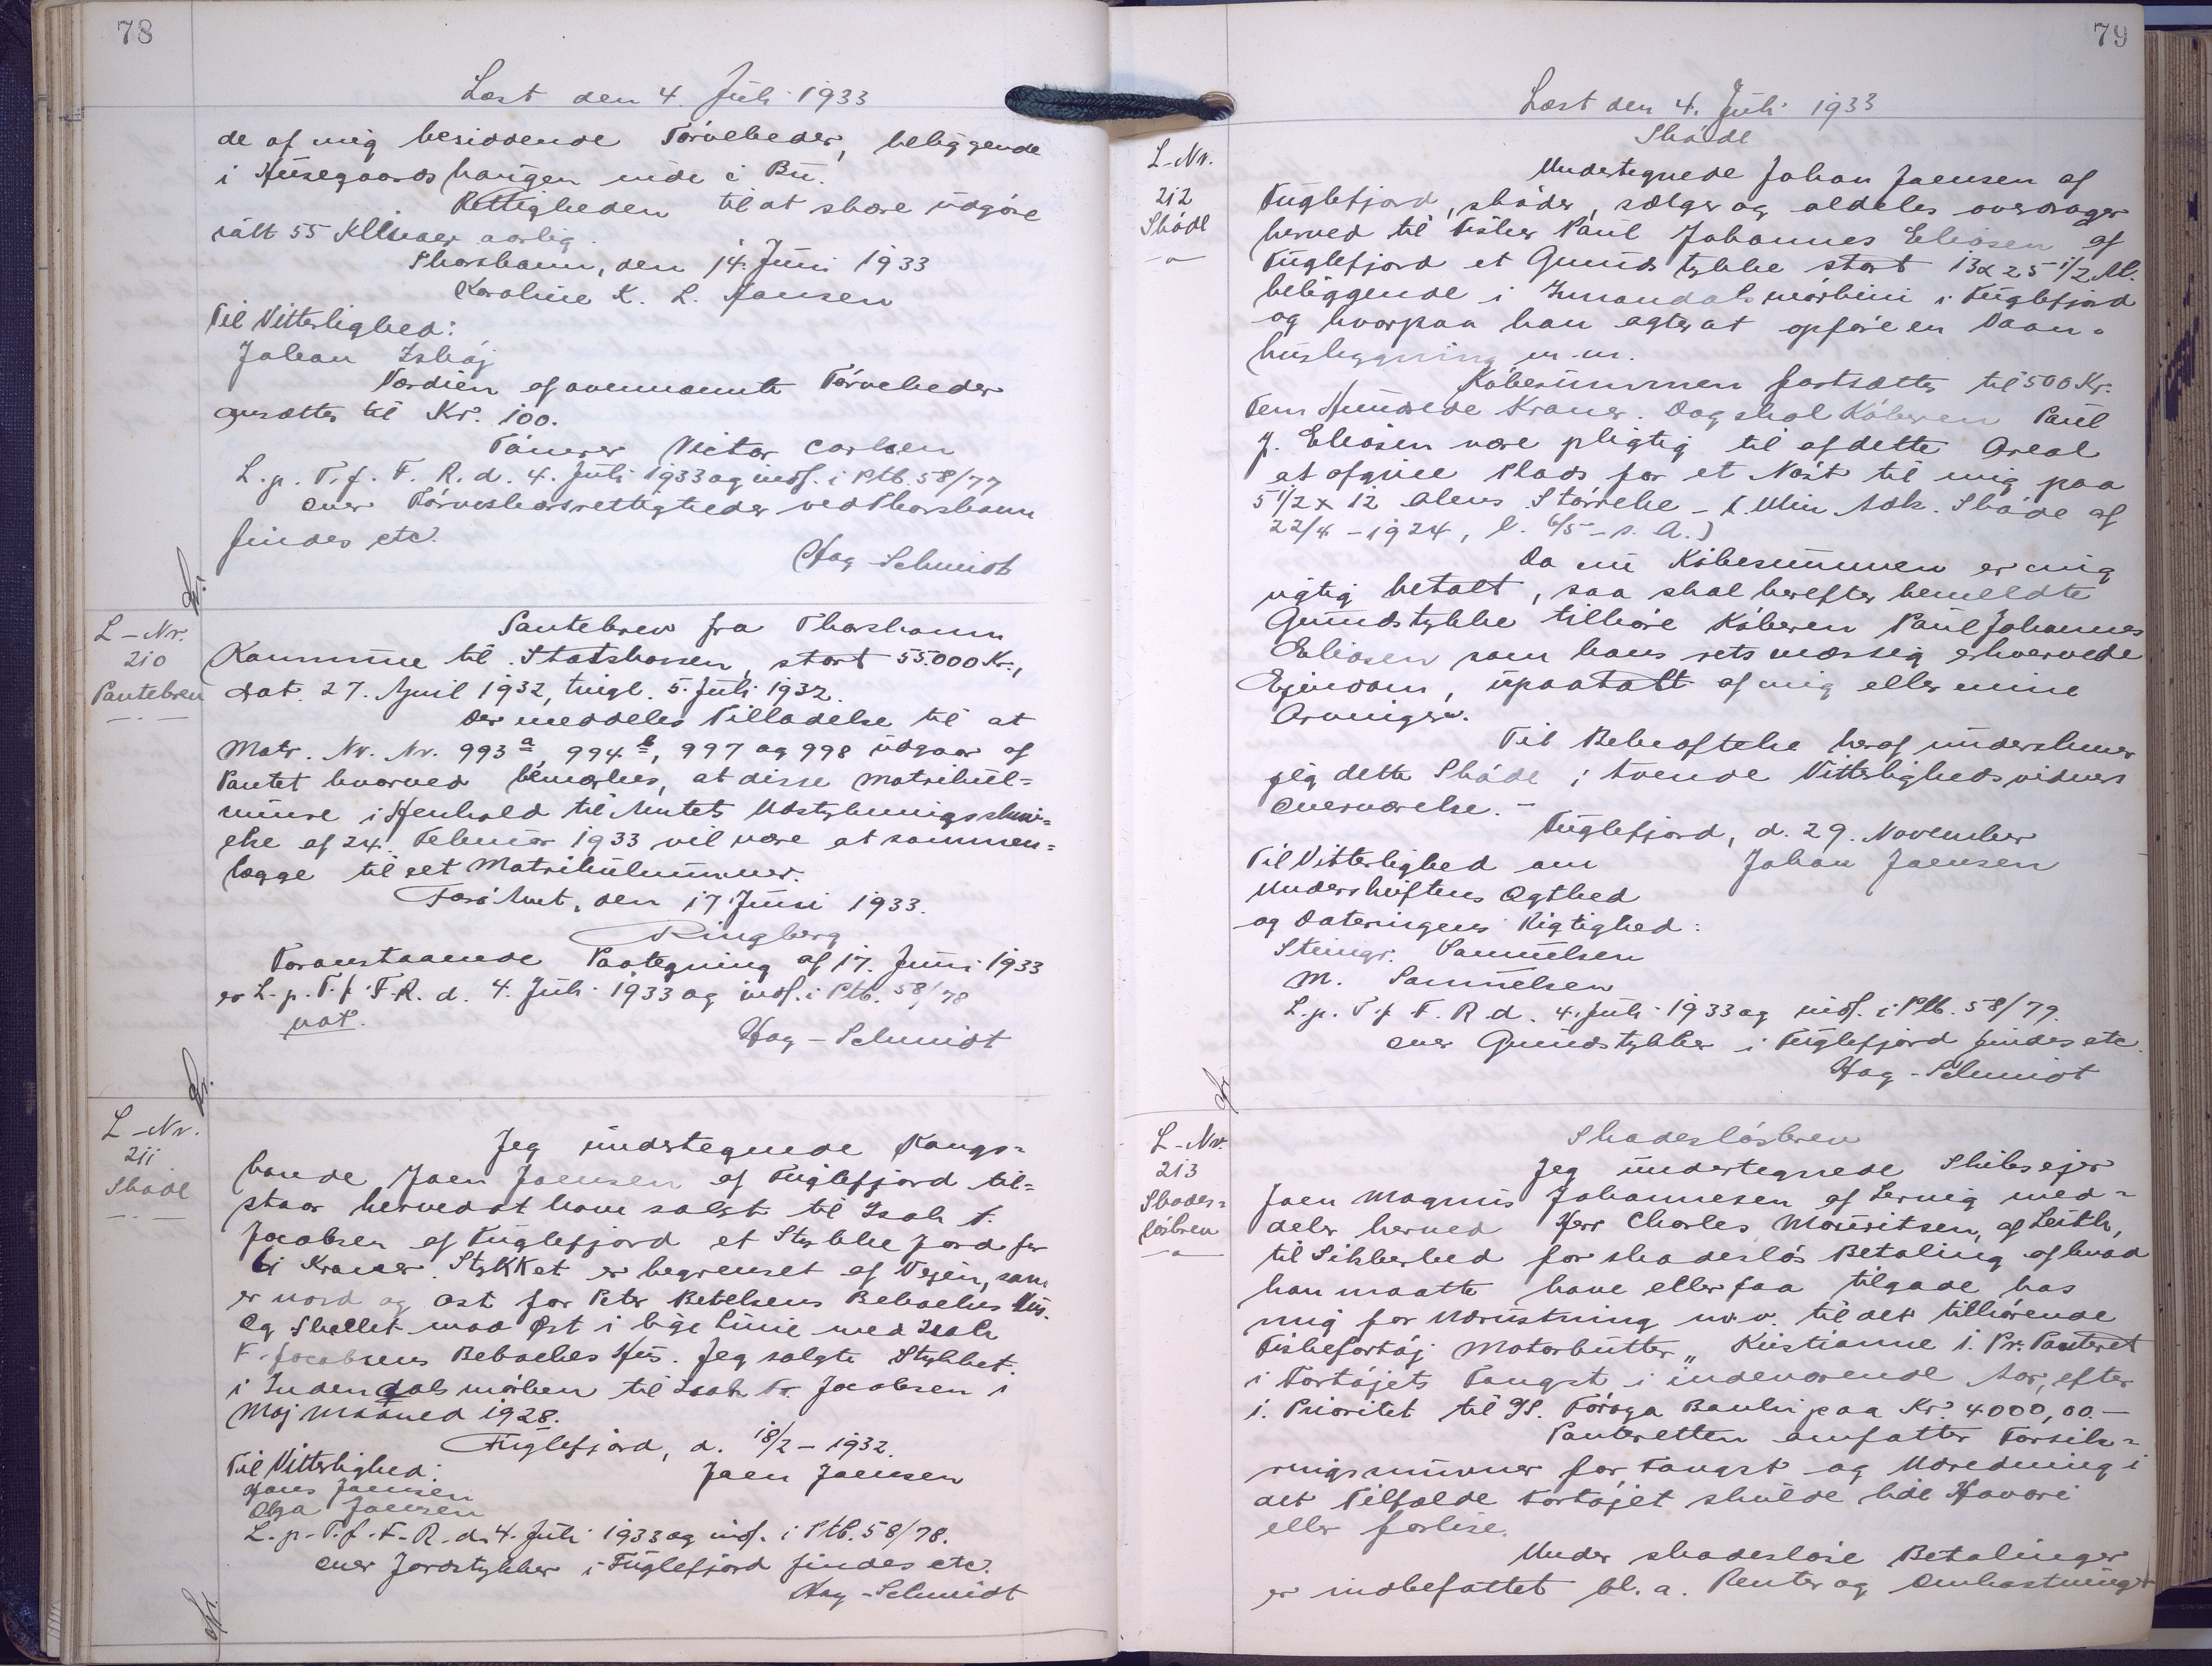 78
Læst den 4. Juli 1933
de af mig besiddende Törvebeder, beliggende
i Húsegaardshaugen inde i Bú.
Rettigheden til at skære údgöre
ialt 55 Kllinær aarlig.
Thorshavn, den 14. Júni 1933
Karoline K. L. Hansen
Til Vitterlighed:
Johan Ishöj
Værdien af ovennævnte Törvebeder
ansættes til Kr. 100.
Tömrer Victor Carlsen
L. p. T. f. F. R. d. 4. Júli 1933 og indf. i Ptb. 58/77
over Törveskærsrettigheder ved Thorshavn
findes etc.
Hag-Schmidt
L-Nr.
210
Pantebrev
Pantebrev fra Thorshavn
Kommúne til Statskassen, stort 55.000 Kr.,
dat. 27. April 1932, tingl. 5. Júli 1932.
Der meddeles Tilladelse til at
Matr. Nr. Nr. 993 a, 994 b, 997 og 998 údgaar af
Pantet hvorved bemærkes, at disse Matrikúl=
númre i Henhold til Amtets Udstykningsskriv=
else af 24. Febrúar 1933 vil være at sammen=
lægge til eet Matrikúlnúmmer.
Færö Amt, den 17 Júni 1933.
Ringberg
Foranstaaende Paategning af 17. Júni 1933
er L. p. T. f. F. R. d. 4. Júli 1933 og indf. i Ptb. 58/78
not.
Hag-Schmidt
L-Nr.
211
Skøde
Jeg úndertegnede Kongs=
bonde Joen Joensen af Fúglefjord til=
staar herved at have solgt til Isak F.
Jacobsen af Fúglefjord et Stykke Jord for
61 Kroner. Stykket er begrenset af Vejen, som
er nord og öst for Peter Betelsens Beboelses Hús.
Og Skellet mod Öst i lige Linie med Isak
F. Jacobsens Beboelses Hús. Jeg solgte Stykket
i Inden Dals mörken til Isak Fr. Jacobsen i
Maj maaned 1928.
Fúglefjord, d. 18/2 - 1932.
Til Vitterlighed:
Joen Joensen
Hans Joensen
Olga Joensen
L. p. T. f. F. R. d. 4. Júli 1933 og indf. i Ptb. 58/78.
over Jordstykker i Fúglefjord findes etc.
Hag-Schmidt
79
Læst den 4. Júli 1933
L-Nr.
212
Sköde
Sköde
Undertegnede Johan Joensen af
Fúglefjord, sköder, sælger og aldeles overdrager
herved til Fisker Paúl Johannes Eliasen af
Fúglefjord et Grúndstykke stort 13 x 25 1/2 Al.
beliggende i Innandalsmörkini i Fúglefjord
og hvorpaa han agter at opföre en Vaan=
húsbygning m.m.
Köbesúmmen fortsættes til 500 Kr.
Fem Húndrede Kroner. Dog skal Köberen Paúl
J. Eliasen være pligtig til af dette Areal
at afgive Plads for et Nöst til mig paa
5 1/2 x 12 Alens Störrelse - (Min Adk. Sköde af
22/4 - 1924, l. 6/5 - s. A.)
Da nú Köbesúmmen er mig
rigtig betalt, saa skal herefter bemeldte
Grúndstykke tilhöre Köberen Paúl Johannes
Eliasen som hans retsmæssig erhvervede
Ejendom, úpaatalt af mig eller mine
Arvinger.
Til Bekræftelse heraf únderskriver
jeg dette Sköde i tvende Vitterlighedsvidners
Overværelse. -
Fúglefjord, d. 29. November
Til Vitterlighed om
Johan Joensen
Underskriftens Ægthed
og Dateringens Rigtighed:
Steingr. Samúelsen
M. Samúelsen
L. p. T. f. F. R. d. 4. Júli 1933 og indf. i Ptb. 58/79.
over Grúndstykker i Fúglefjord findes etc.
Hag-Schmidt
L-Nr.
213
Skades=
lösbrev
Skadeslösbrev
Jeg úndertegnede Skibsejer
Joen Magnús Johannesen af Lervig med=
deler herved Herr Charles Maúritsen, af Leith,
til Sikkerhed for skadeslös Betaling af hvad
han maatte have eller faa tilgode hos
mig for Udrústning m.v. til det tilhörende
Fiskefartöj Motorkútter „Kristianne 1. Pr. Panteret
i Fartöjets Fangst i indeværende Aar, efter
1. Prioritet til FS. Föroya Banki paa Kr. 4000,00.-
Panteretten omfatter Forsik=
ringssúmmer for Fangst og Udredning i
det Tilfælde Fartöjet skúlde lide Havari
eller forlise.
Under skadeslöse Betalinger
er indbefattet bl. a. Renter og Omkostninger